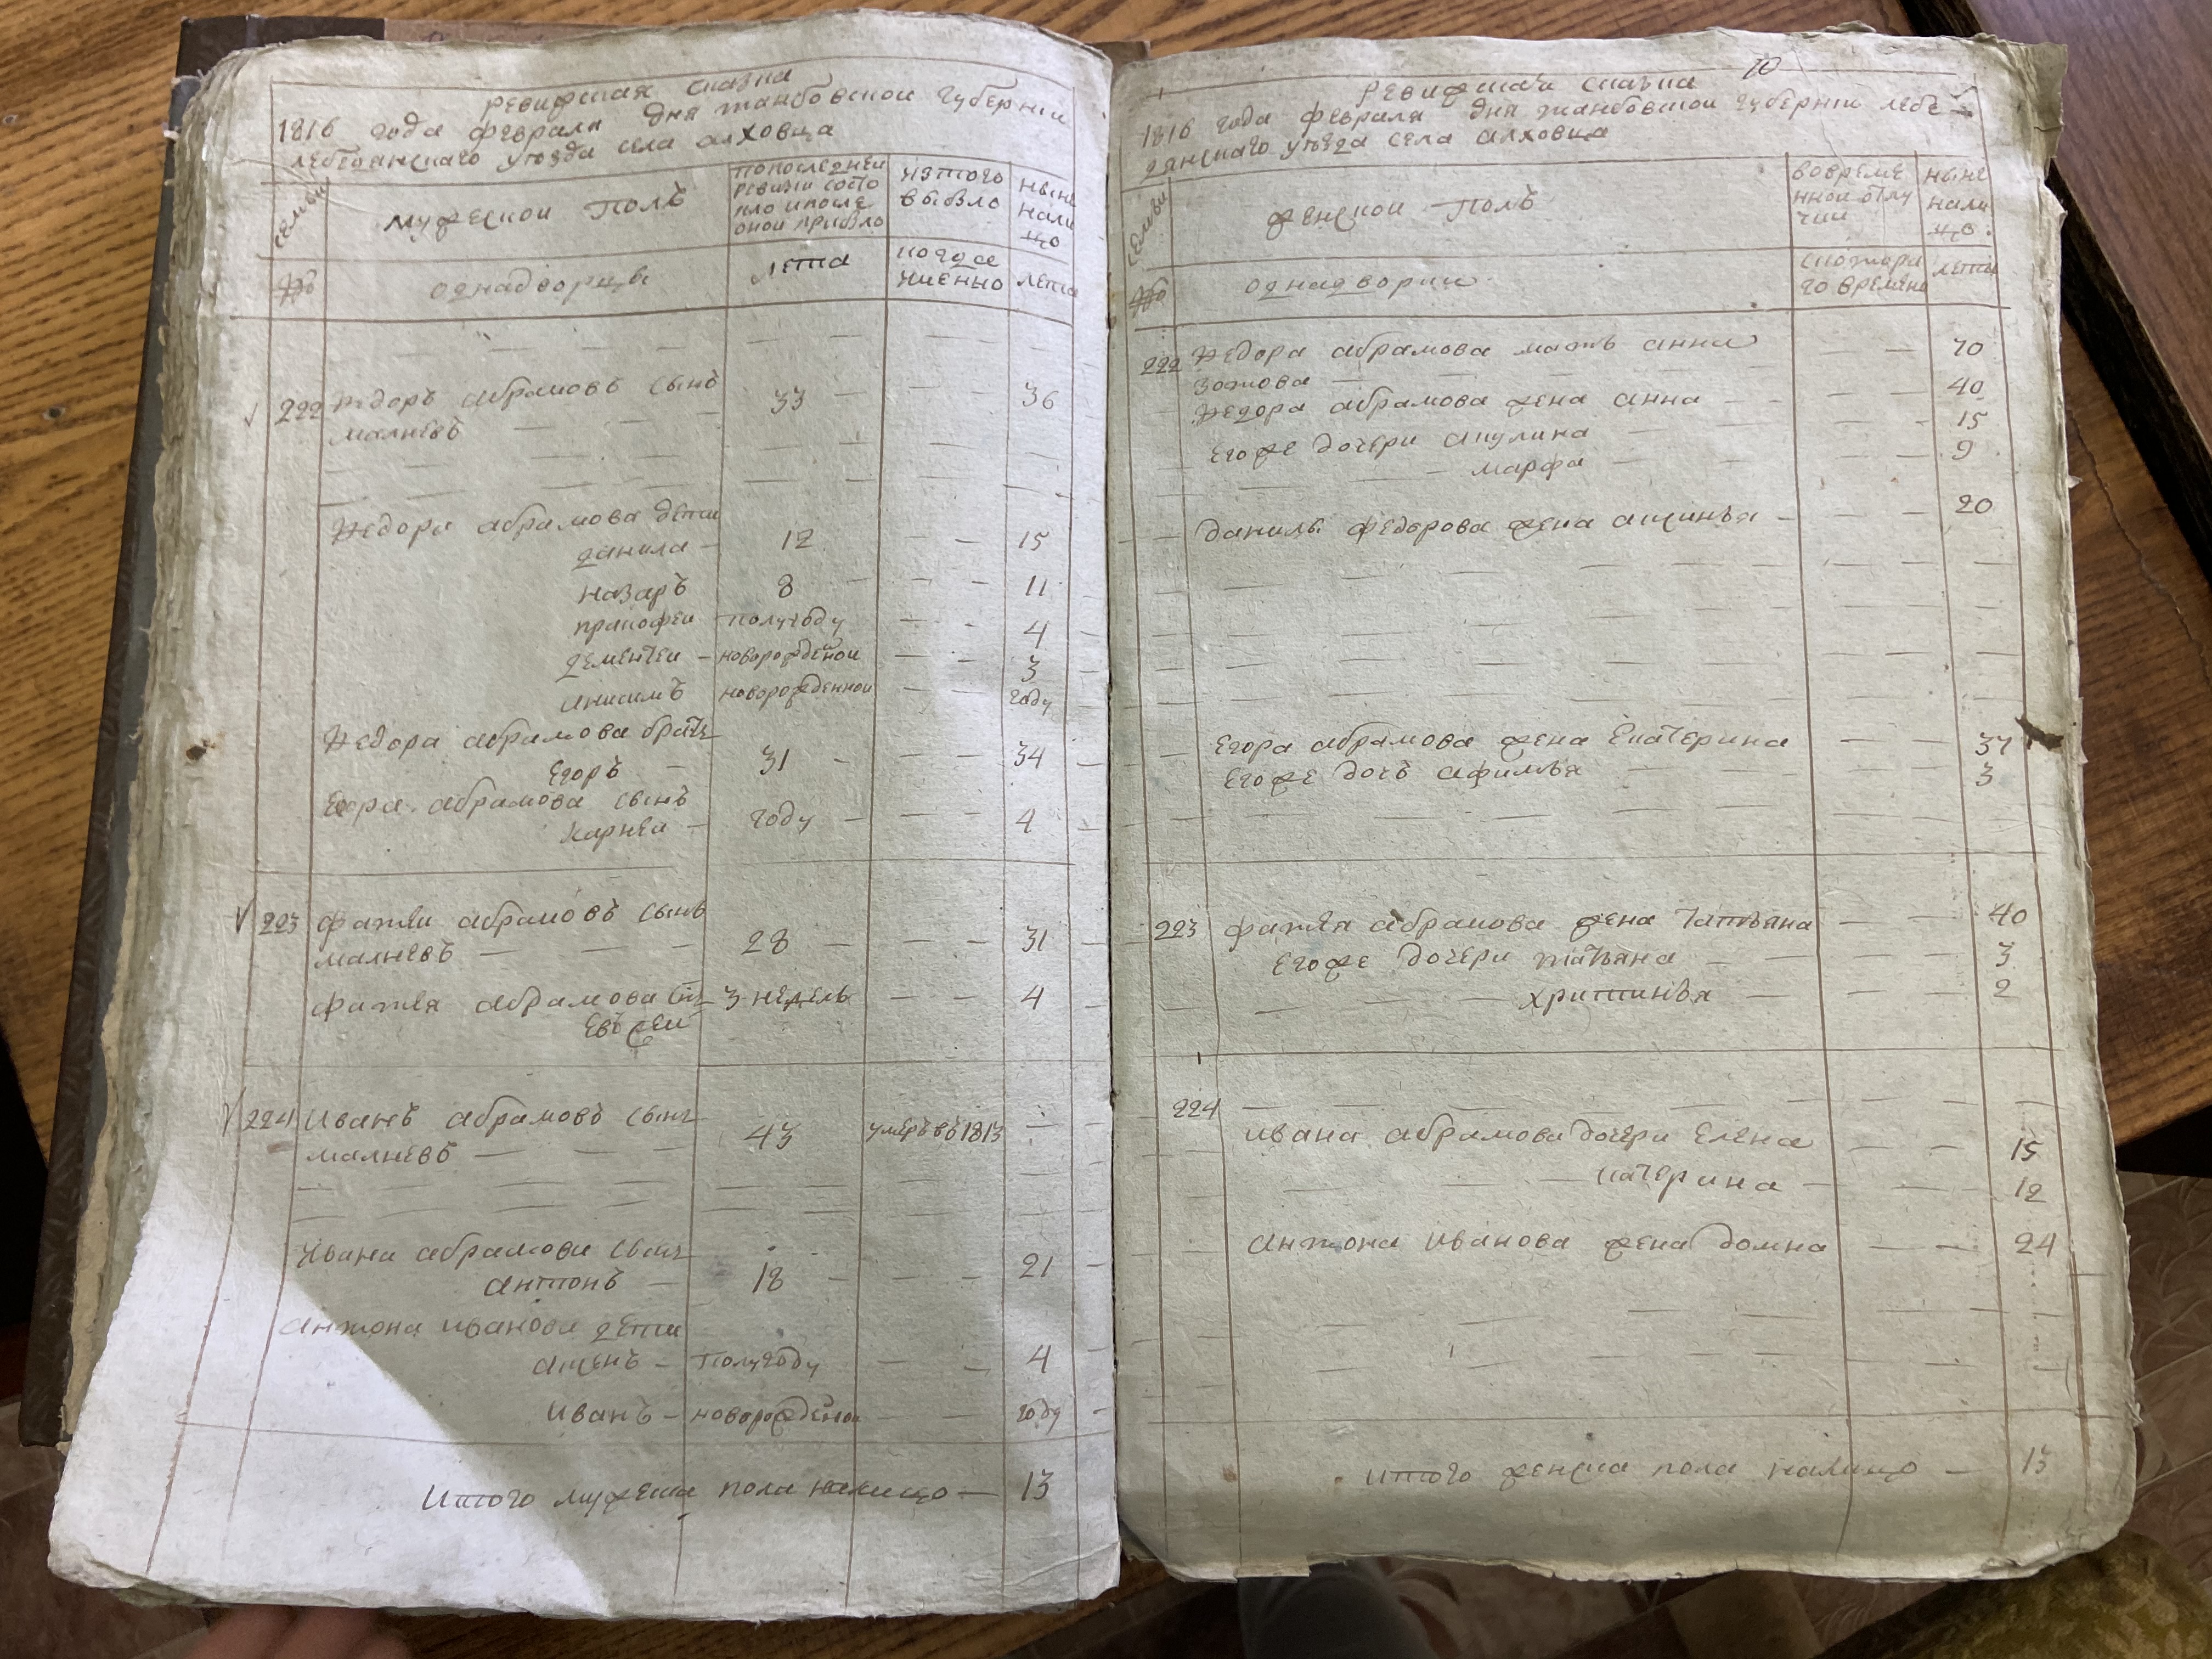 ревиския сказка
1816 года февраля дня танбовской губернии
лебедянскаго уезда села алховца
семьи
мужескои полъ
попоследнеи
ревизи состо
яло ипосле
оной прибыло
изтого
выбыло
ныне
нали
цо
№
однадворцы
лета
когда
имянно
лета
222 Федоръ абрамовъ сынъ
малневъ — 33 — 36
Федора абрамова дети
данила — 12 — 15
назаръ 8 — 11
пракофеи полугоду — 4
дементеи — новорожденои — 3
анисимъ новорожденнои — году
Федора абрамова братъ
Егоръ — 31 — 34
Егора абрамова сынъ
карнеи — году — 4
223 фатеи абрамовъ сынъ
малневъ — 28 — 31
фатея абрамова сынъ 3 недель — 4
Евсеи
224 Иванъ абрамовъ сынъ
малневъ — 43 умеръ въ 1813 —
Ивана абрамова сынъ
антонъ — 18 — 21
антона иванова дети
аксенъ — полугоду — 4
Иванъ — новорожденои — году
Итого мужеска пола налицо — 13
70
ревиская сказка
1816 года февраля дня танбовской губернии лебе
дянскаго уезда села алховца
семьи
женскои полъ
вовреме
ннои отлу
чки
ныне
нали
цо
№
однадворки
скотора
го времени
лета
222 Федора абрамова мать анна — 70
зотова —
Федора абрамова жена анна — 40
Егоже дочери акулина — 15
— марфа — 9
данилы федорова жена аксинья — 20
Егора абрамова жена Екатерина — 37
Егоже дочь афимья — 3
223 фатея абрамова жена татьяна — 40
Егоже дочери татьяна — 3
— христинья — 2
224
ивана абрамова дочери Елена — 15
— катерина — 12
антона иванова жена домна — 24
Итого женска пола налицо — 13